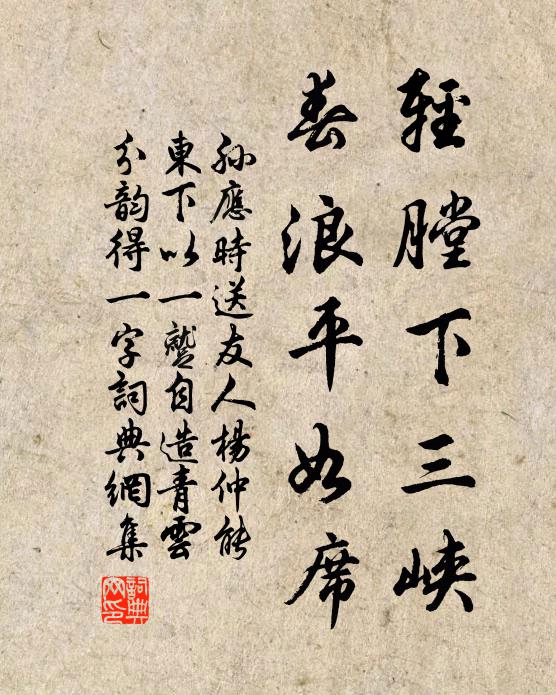 輕膛下三峽
春浪平如席
孫應時送友人楊仲能
東下以一蹵自造青雲
分韵得一字詞典網集
詞典
网印